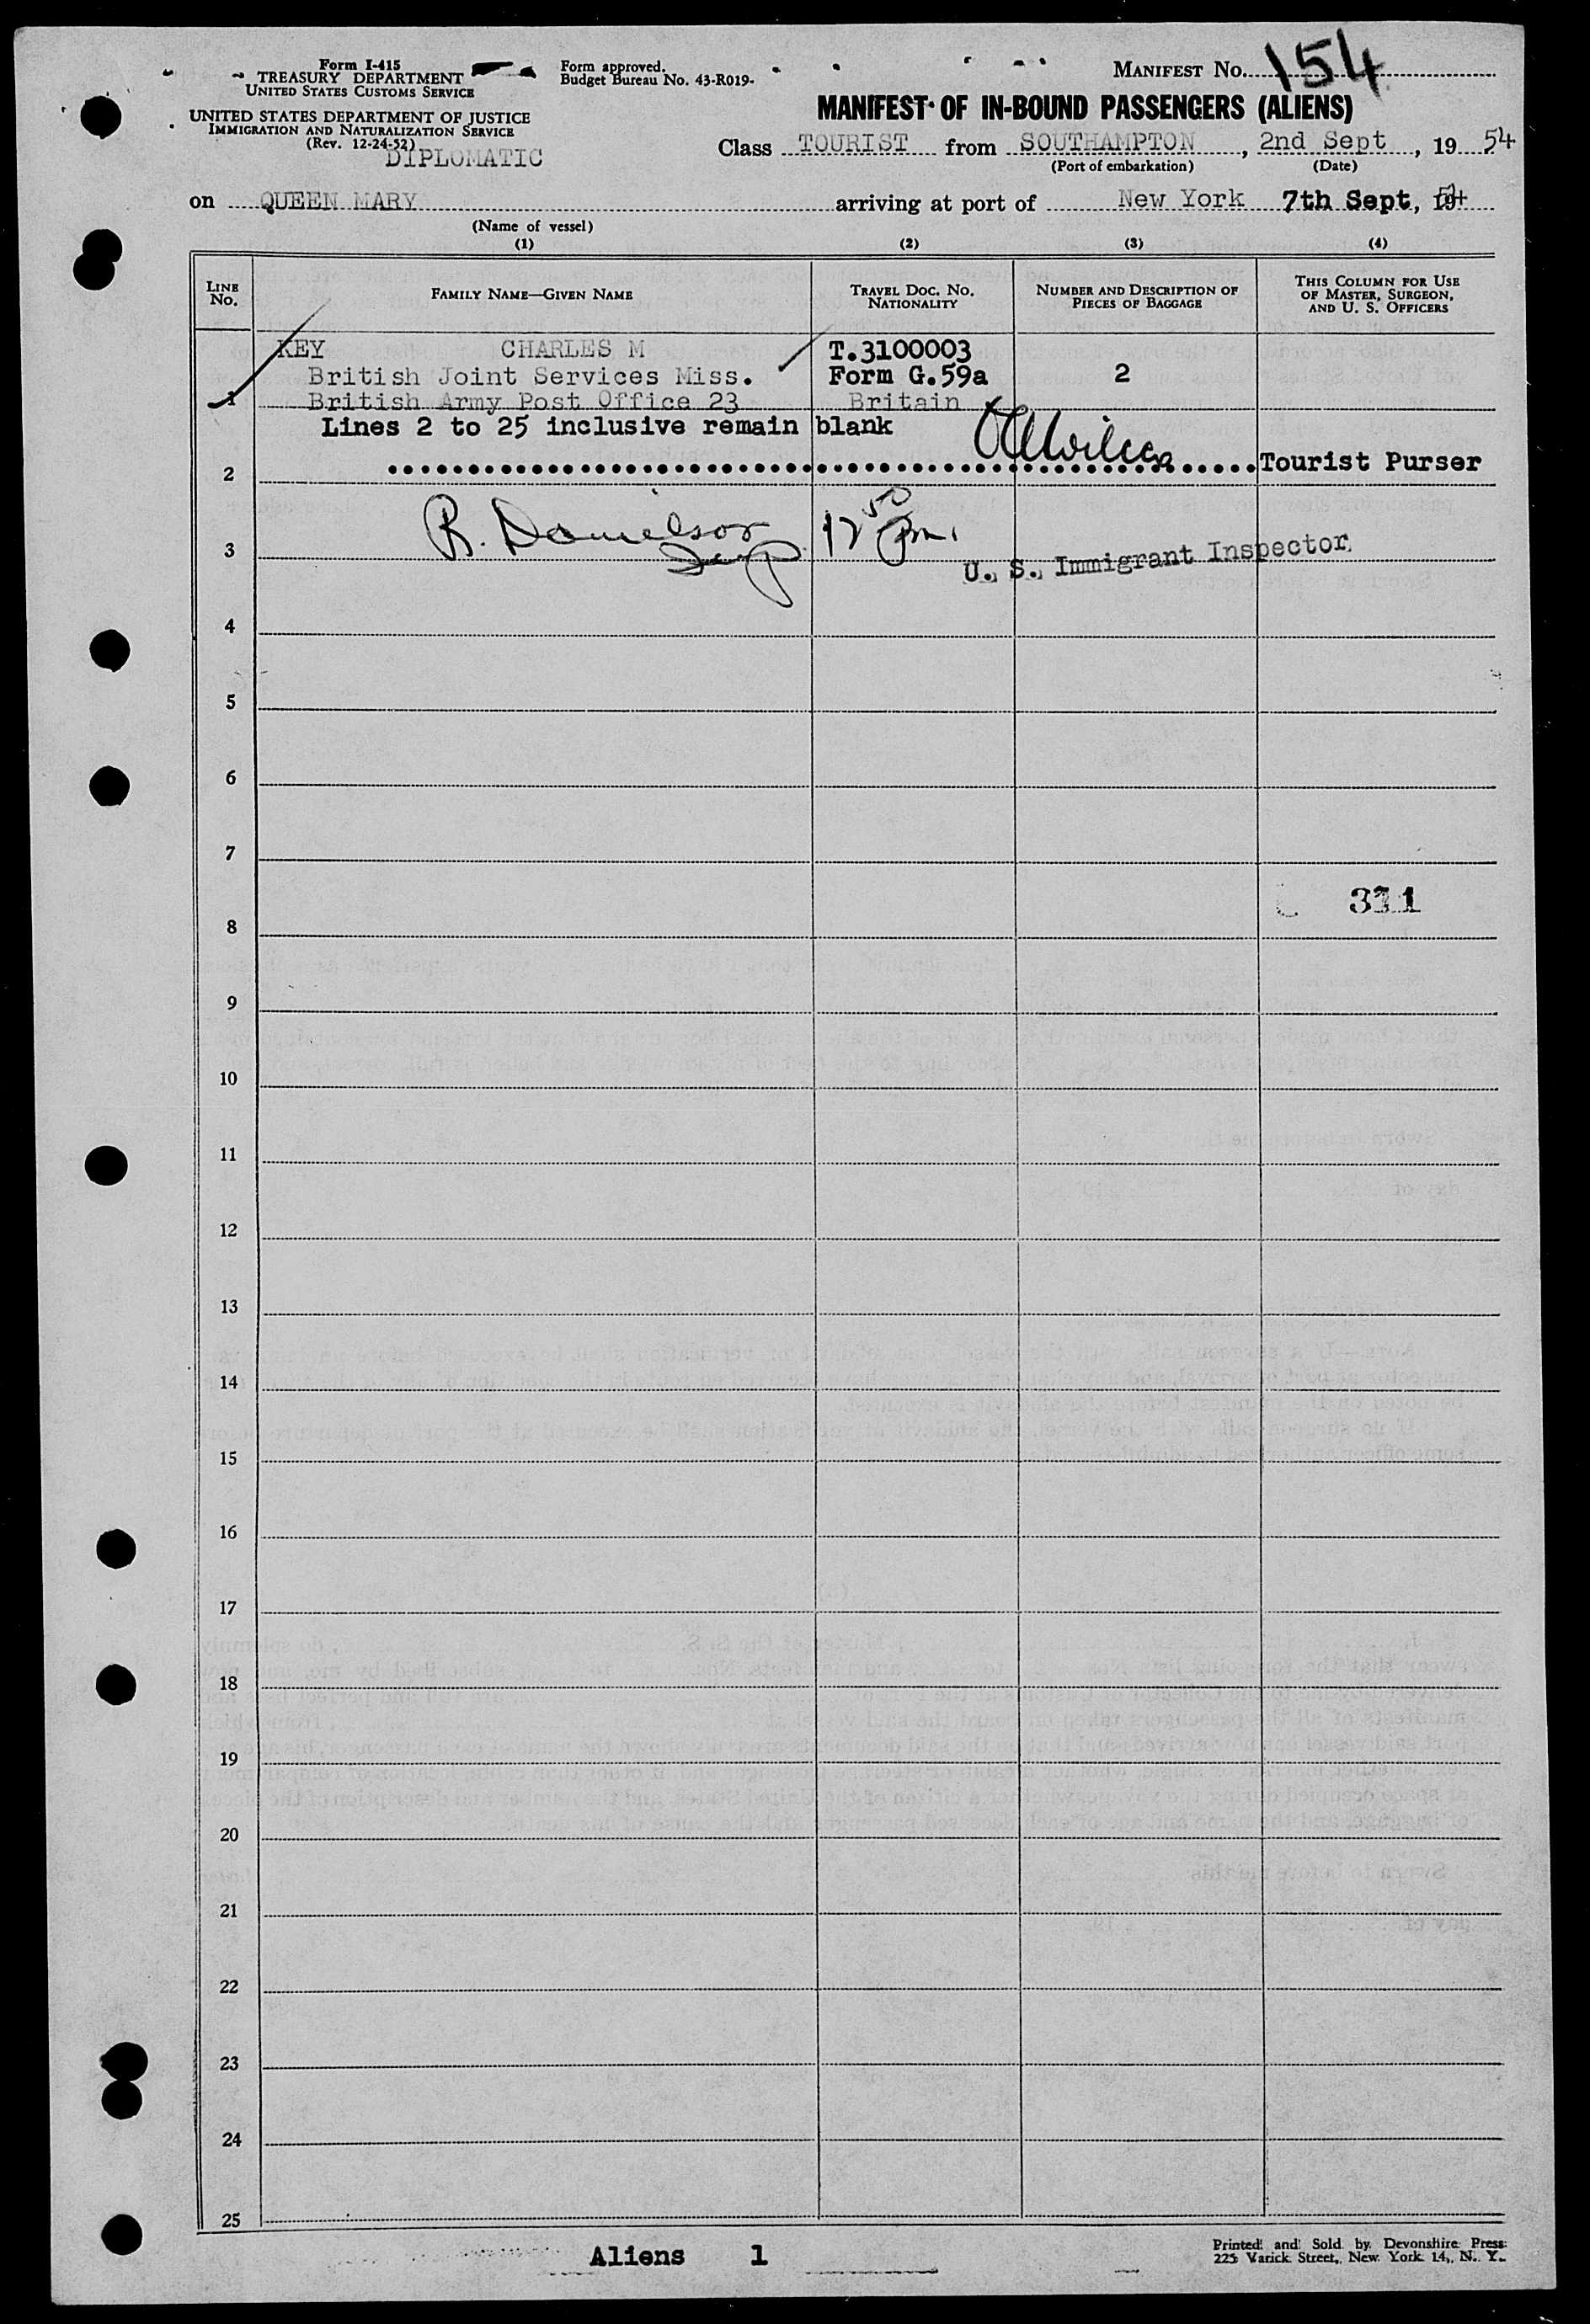 Form I-415
TREASURY DEPARTMENT
UNITED STATES CUSTOMS SERVICE
UNITED STATES DEPARTMENT OF JUSTICE
IMMIGRATION AND NATURALIZATION SERVICE
(Rev. 12-24-52)
DIPLOMATIC
Form approved.
Budget Bureau No. 43-R019-
MANIFEST No. 154
MANIFEST OF IN-BOUND PASSENGERS (ALIENS)
Class TOURIST from SOUTHAMPTON, 2nd Sept, 19 54
(Port of embarkation) (Date)
on QUEEN MARY arriving at port of New York 7th Sept, 19 54
(Name of vessel)
(1) (2) (3) (4)
LINE No.
FAMILY NAME—GIVEN NAME
TRAVEL DOC. NO. NATIONALITY
NUMBER AND DESCRIPTION OF PIECES OF BAGGAGE
THIS COLUMN FOR USE OF MASTER, SURGEON, AND U. S. OFFICERS
KEY CHARLES M T.3100003
British Joint Services Miss. Form G.59a 2
1 British Army Post Office 23 Britain
Lines 2 to 25 inclusive remain blank
2 Tourist Purser
R. Danielson 12 50 pm.
3 U. S. Immigrant Inspector
4
5
6
7
8
9
10
11
12
13
14
15
16
17
18
19
20
21
22
23
24
25
Aliens 1
Printed and Sold by Devonshire Press
225 Varick Street, New York 14, N. Y.